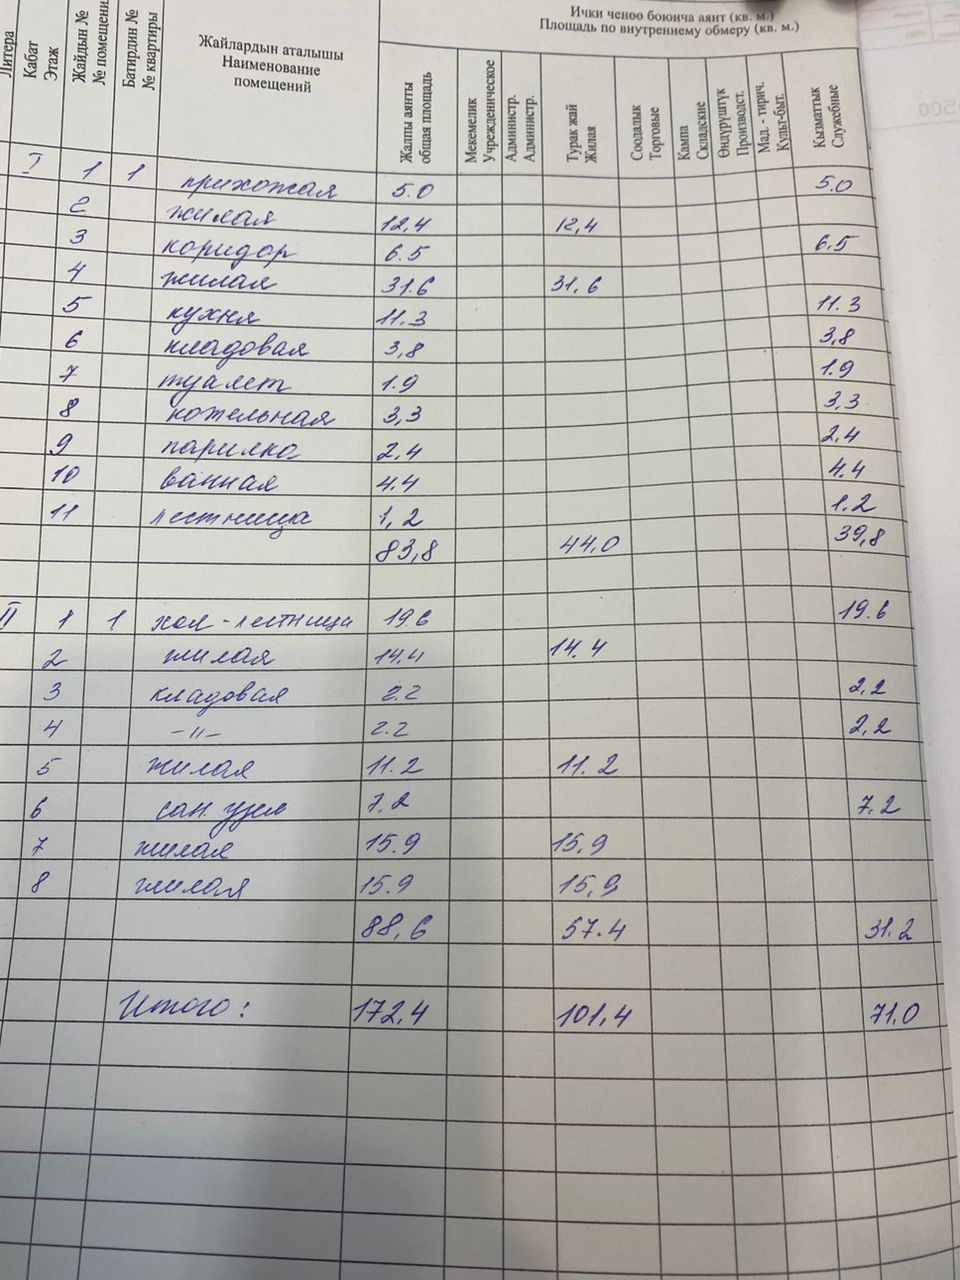 Ички ченөө боюнча аянт (кв. м.)
Площадь по внутреннему обмеру (кв. м.)
Литера
Кабат
Этаж
Жайдын №
№ помещени
Батирдин №
№ квартиры
Жайлардын аталышы
Наименование
помещений
Жалпы аянты
общая площадь
Мекемелик
Учрежденическое
Администр.
Администр.
Турак жай
Жилая
Соодалык
Торговые
Кампа
Складские
Өндүрүштүк
Производст.
Мад. - тирич.
Культ-быт.
Кызматтык
Служебные
I 1 1 прихожая 5.0 5.0
2 жилая 12,4 12,4
3 коридор 6.5 6,5
4 жилая 31.6 31,6
5 кухня 11.3 11.3
6 кладовая 3,8 3,8
7 туалет 1.9 1.9
8 котельная 3,3 3,3
9 парилка 2,4 2.4
10 ванная 4.4 4.4
11 лестница 1,2 1.2
83,8 44,0 39,8
II 1 1 хол - лестница 19.6 19.6
2 жилая 14.4 14.4
3 кладовая 2.2 2,2
4 -"- 2.2 2,2
5 жилая 11.2 11.2
6 сан. узел 7.2 7.2
7 жилая 15.9 15,9
8 жилая 15.9 15,9
88,6 57.4 31.2
Итого: 172,4 101,4 71,0